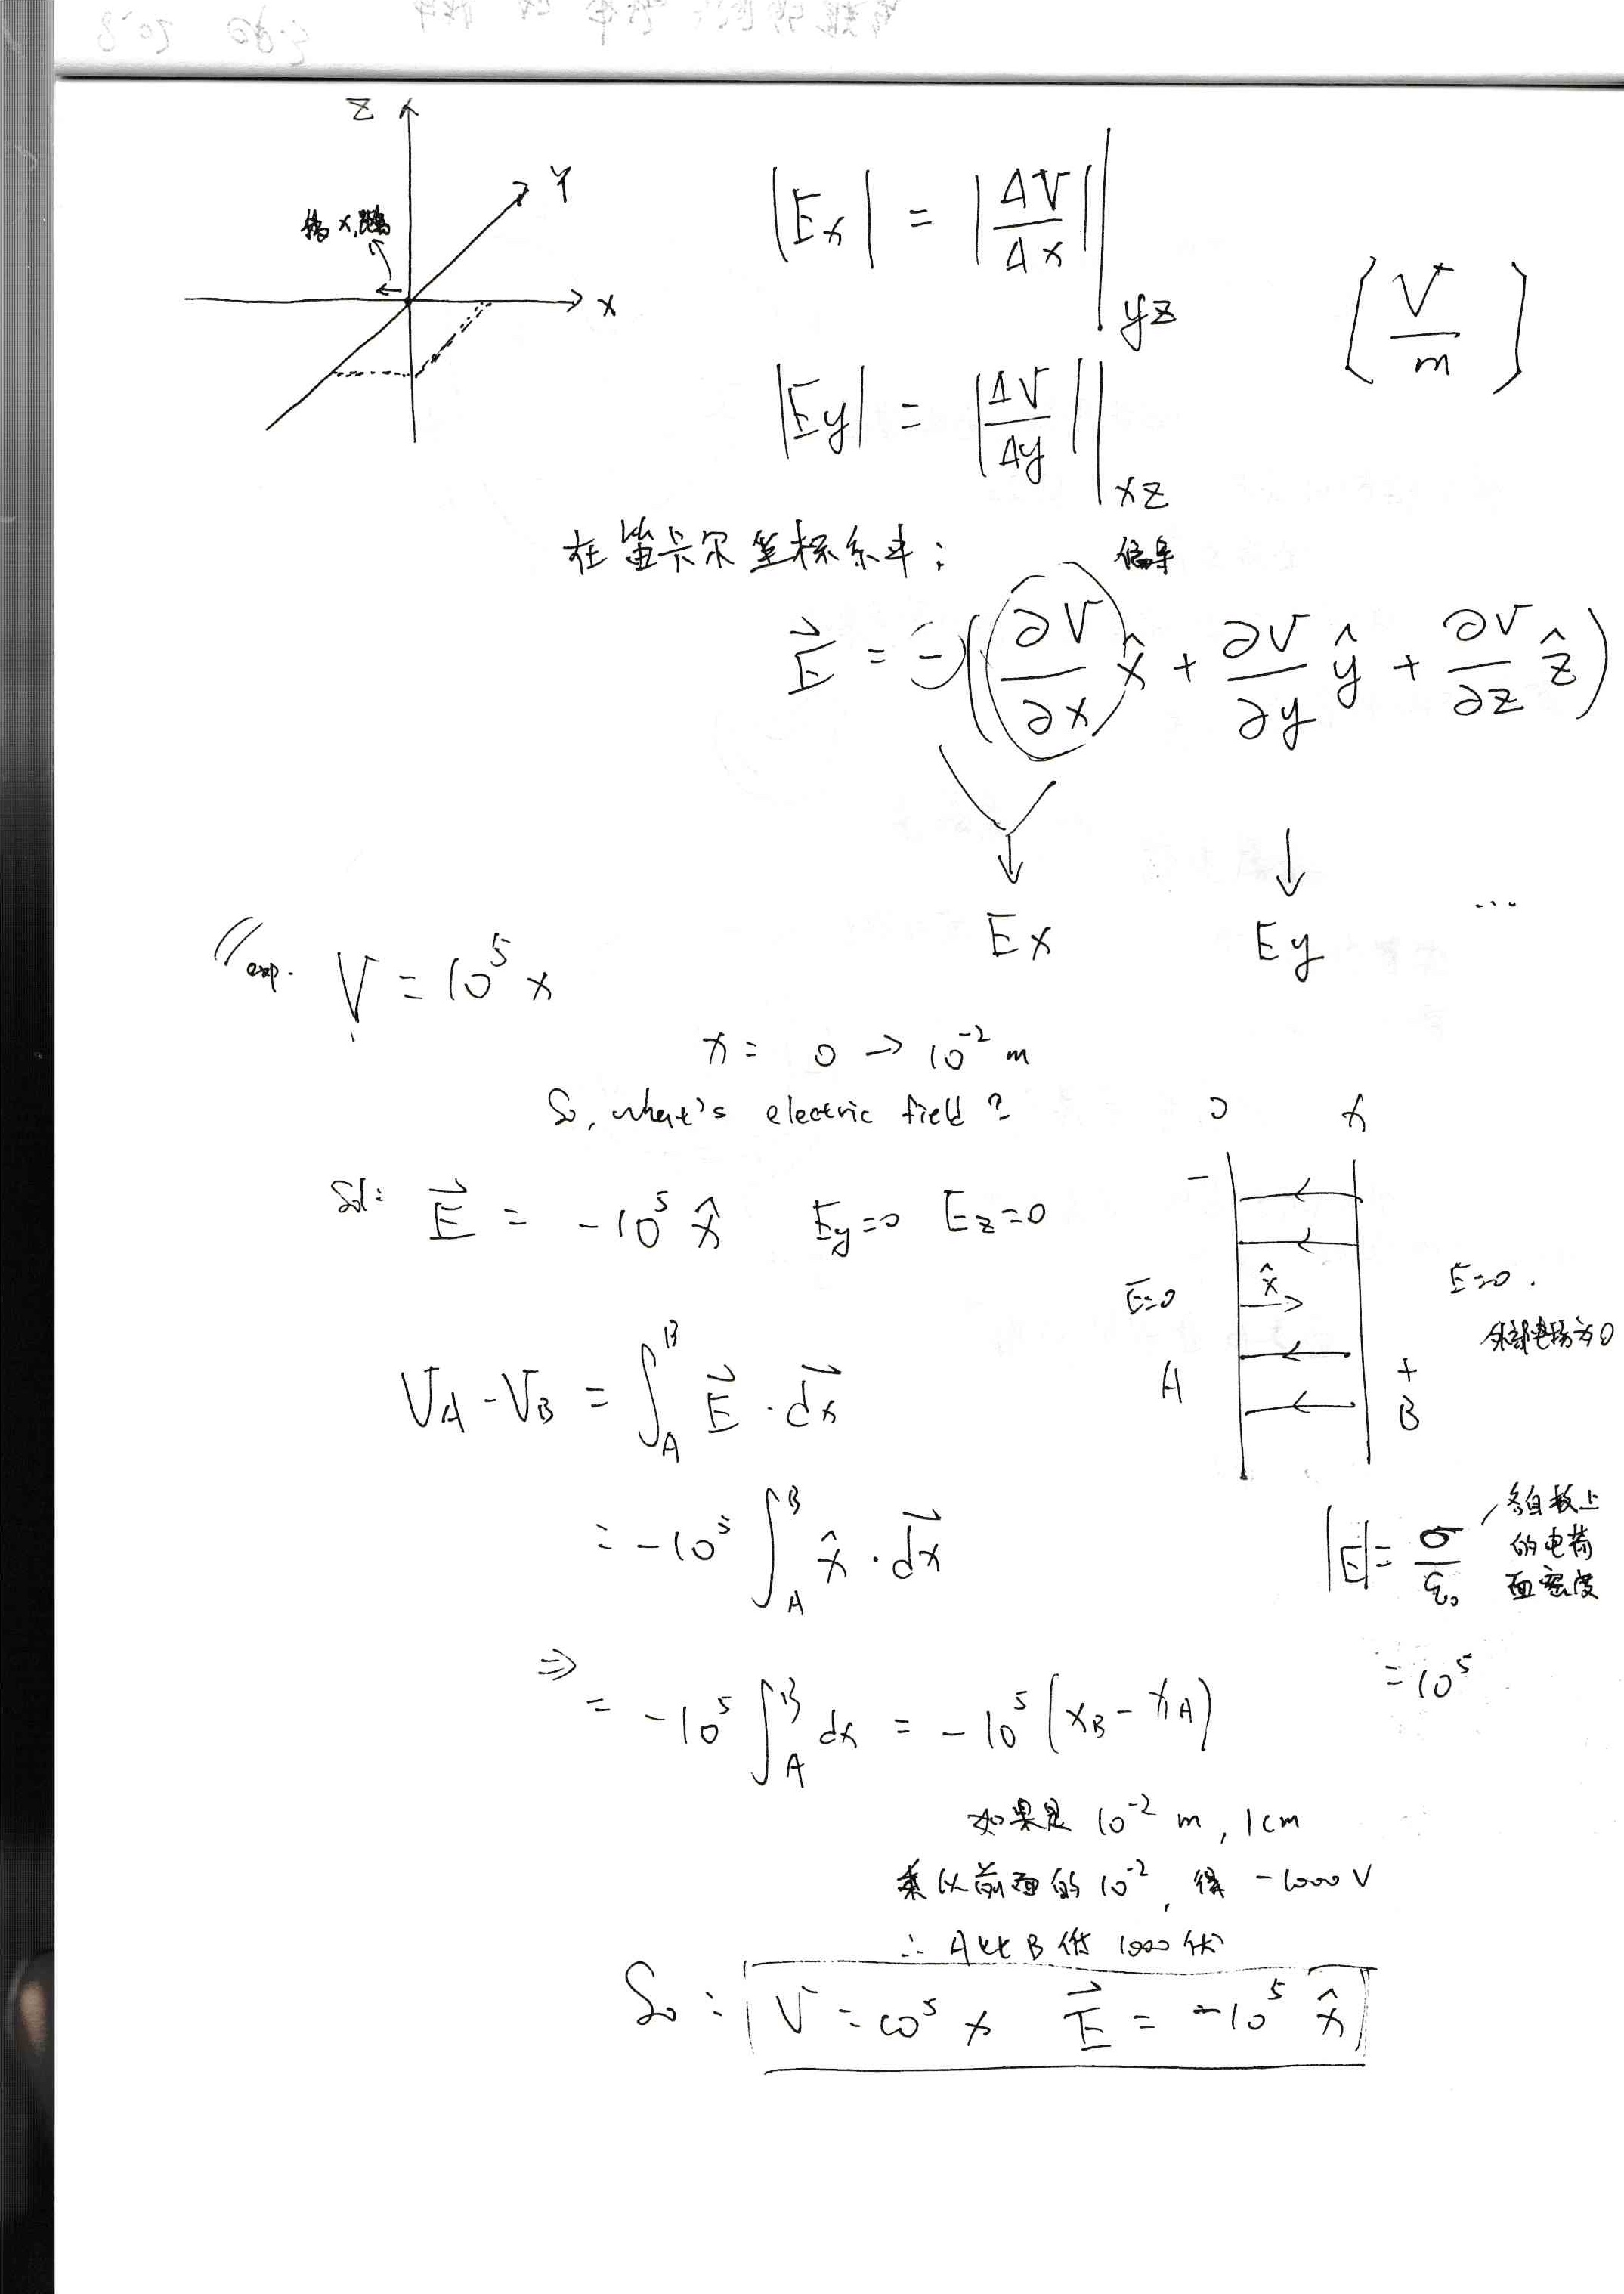 Z
Y
X
|Ex| = |ΔV/Δx| |yz
[V/m]
|Ey| = |ΔV/Δy| |xz
在笛卡尔坐标系中:
偏导
E⃗ = -(∂V/∂x x̂ + ∂V/∂y ŷ + ∂V/∂z ẑ)
↓ ↓
Ex Ey ...
exp. V = 10⁵ x
x = 0 → 10⁻² m
So, what's electric field?
0 x
Sol: E⃗ = -10⁵ x̂ Ey=0 Ez=0
-
E=0 x̂ E=0.
外部电场为0
A + B
V_A - V_B = ∫_A^B E⃗ · dx⃗
= -10⁵ ∫_A^B x̂ · dx⃗
|E| = σ/ε₀
各自板上
的电荷
面密度
= 10⁵
⇒ = -10⁵ ∫_A^B dx = -10⁵ (x_B - x_A)
如果是 10⁻² m, 1cm
乘以前面的 10⁻², 得 -1000 V
∴ A比B低 1000 伏
So: V = 10⁵ x E⃗ = -10⁵ x̂